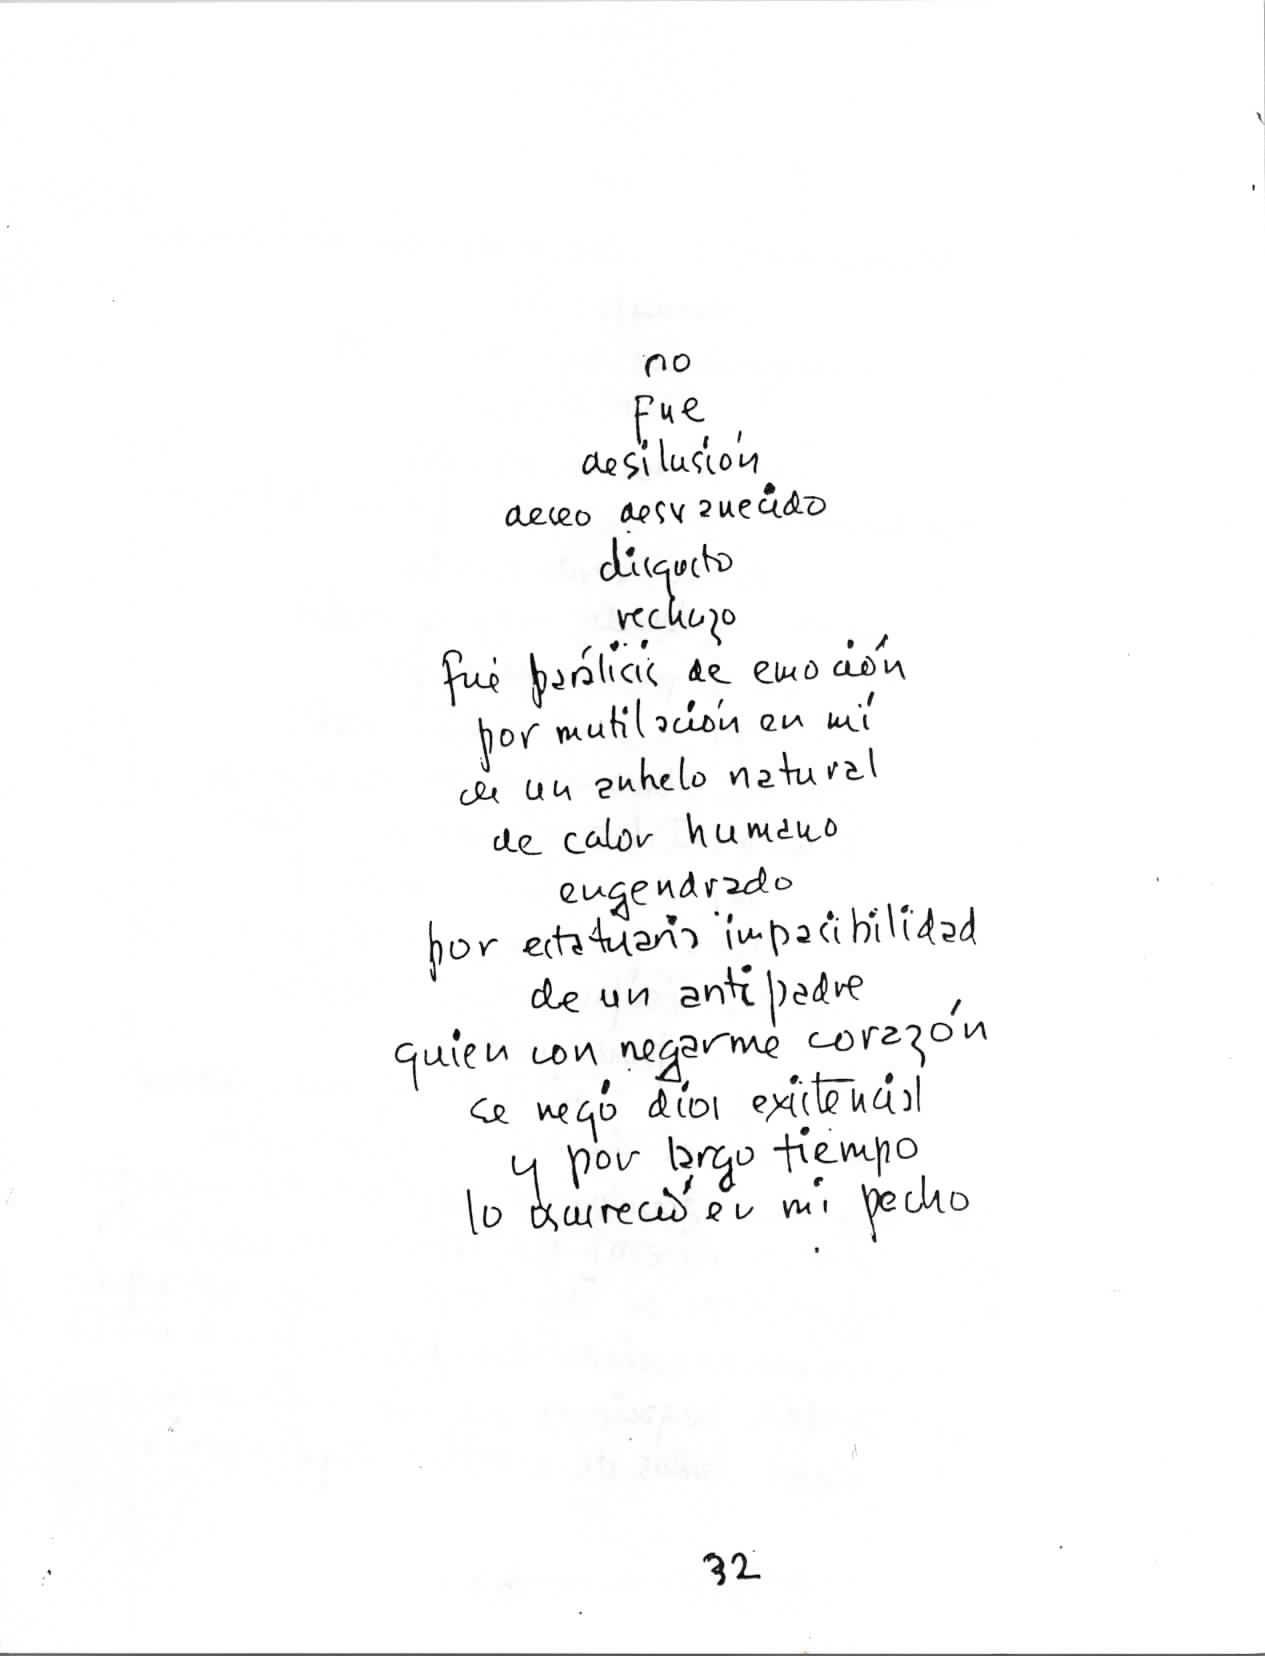 no
fue
desilusión
deseo desvanecido
disgusto
rechazo
fue parálisis de emoción
por mutilación en mí
de un anhelo natural
de calor humano
engendrado
por estatuaria impasibilidad
de un antipadre
quien con negarme corazón
se negó dios existencial
y por largo tiempo
lo oscureció en mi pecho
32